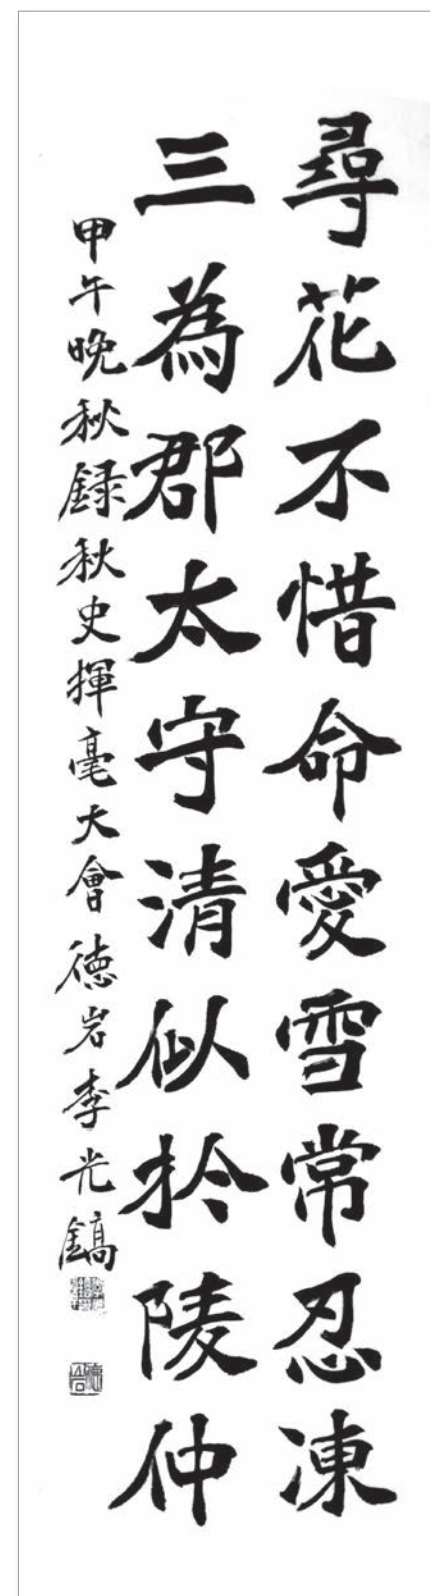 尋花不惜命愛雪常忍凍
三為郡太守清似於陵仲
甲午晩秋録秋史揮毫大會徳岩李光鎬